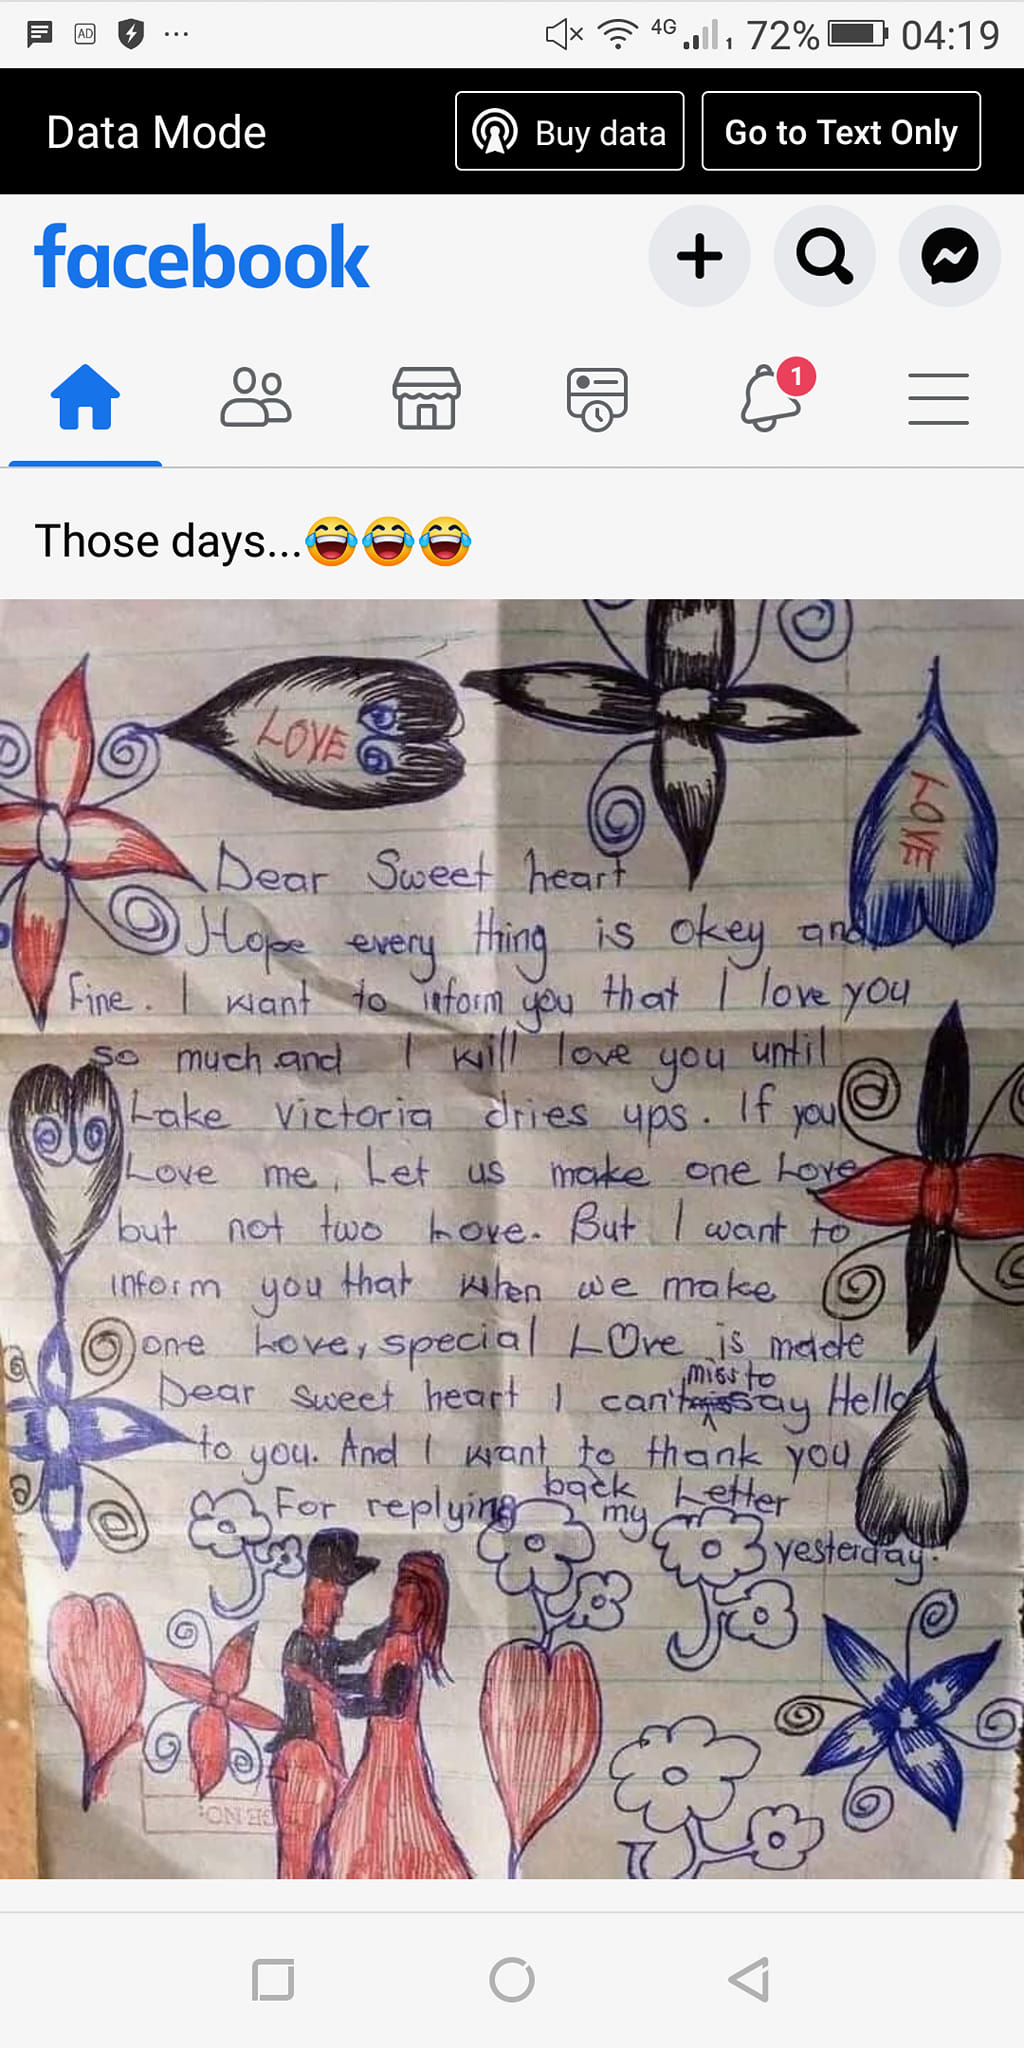 AD
4G
1
72%
04:19
Data Mode
Buy data
Go to Text Only
facebook
1
Those days...😂😂😂
LOVE
LOVE
Dear Sweet heart
Hope every thing is okey and
Fine. I want to inform you that I love you
so much and I will love you until
Lake Victoria dries ups. If you
Love me, Let us make one Love
but not two Love. But I want to
inform you that when we make
one Love, special LOve is made
miss to
Dear sweet heart I can't say Hello
to you. And I want to thank you
For replying back my Letter
yesterday.